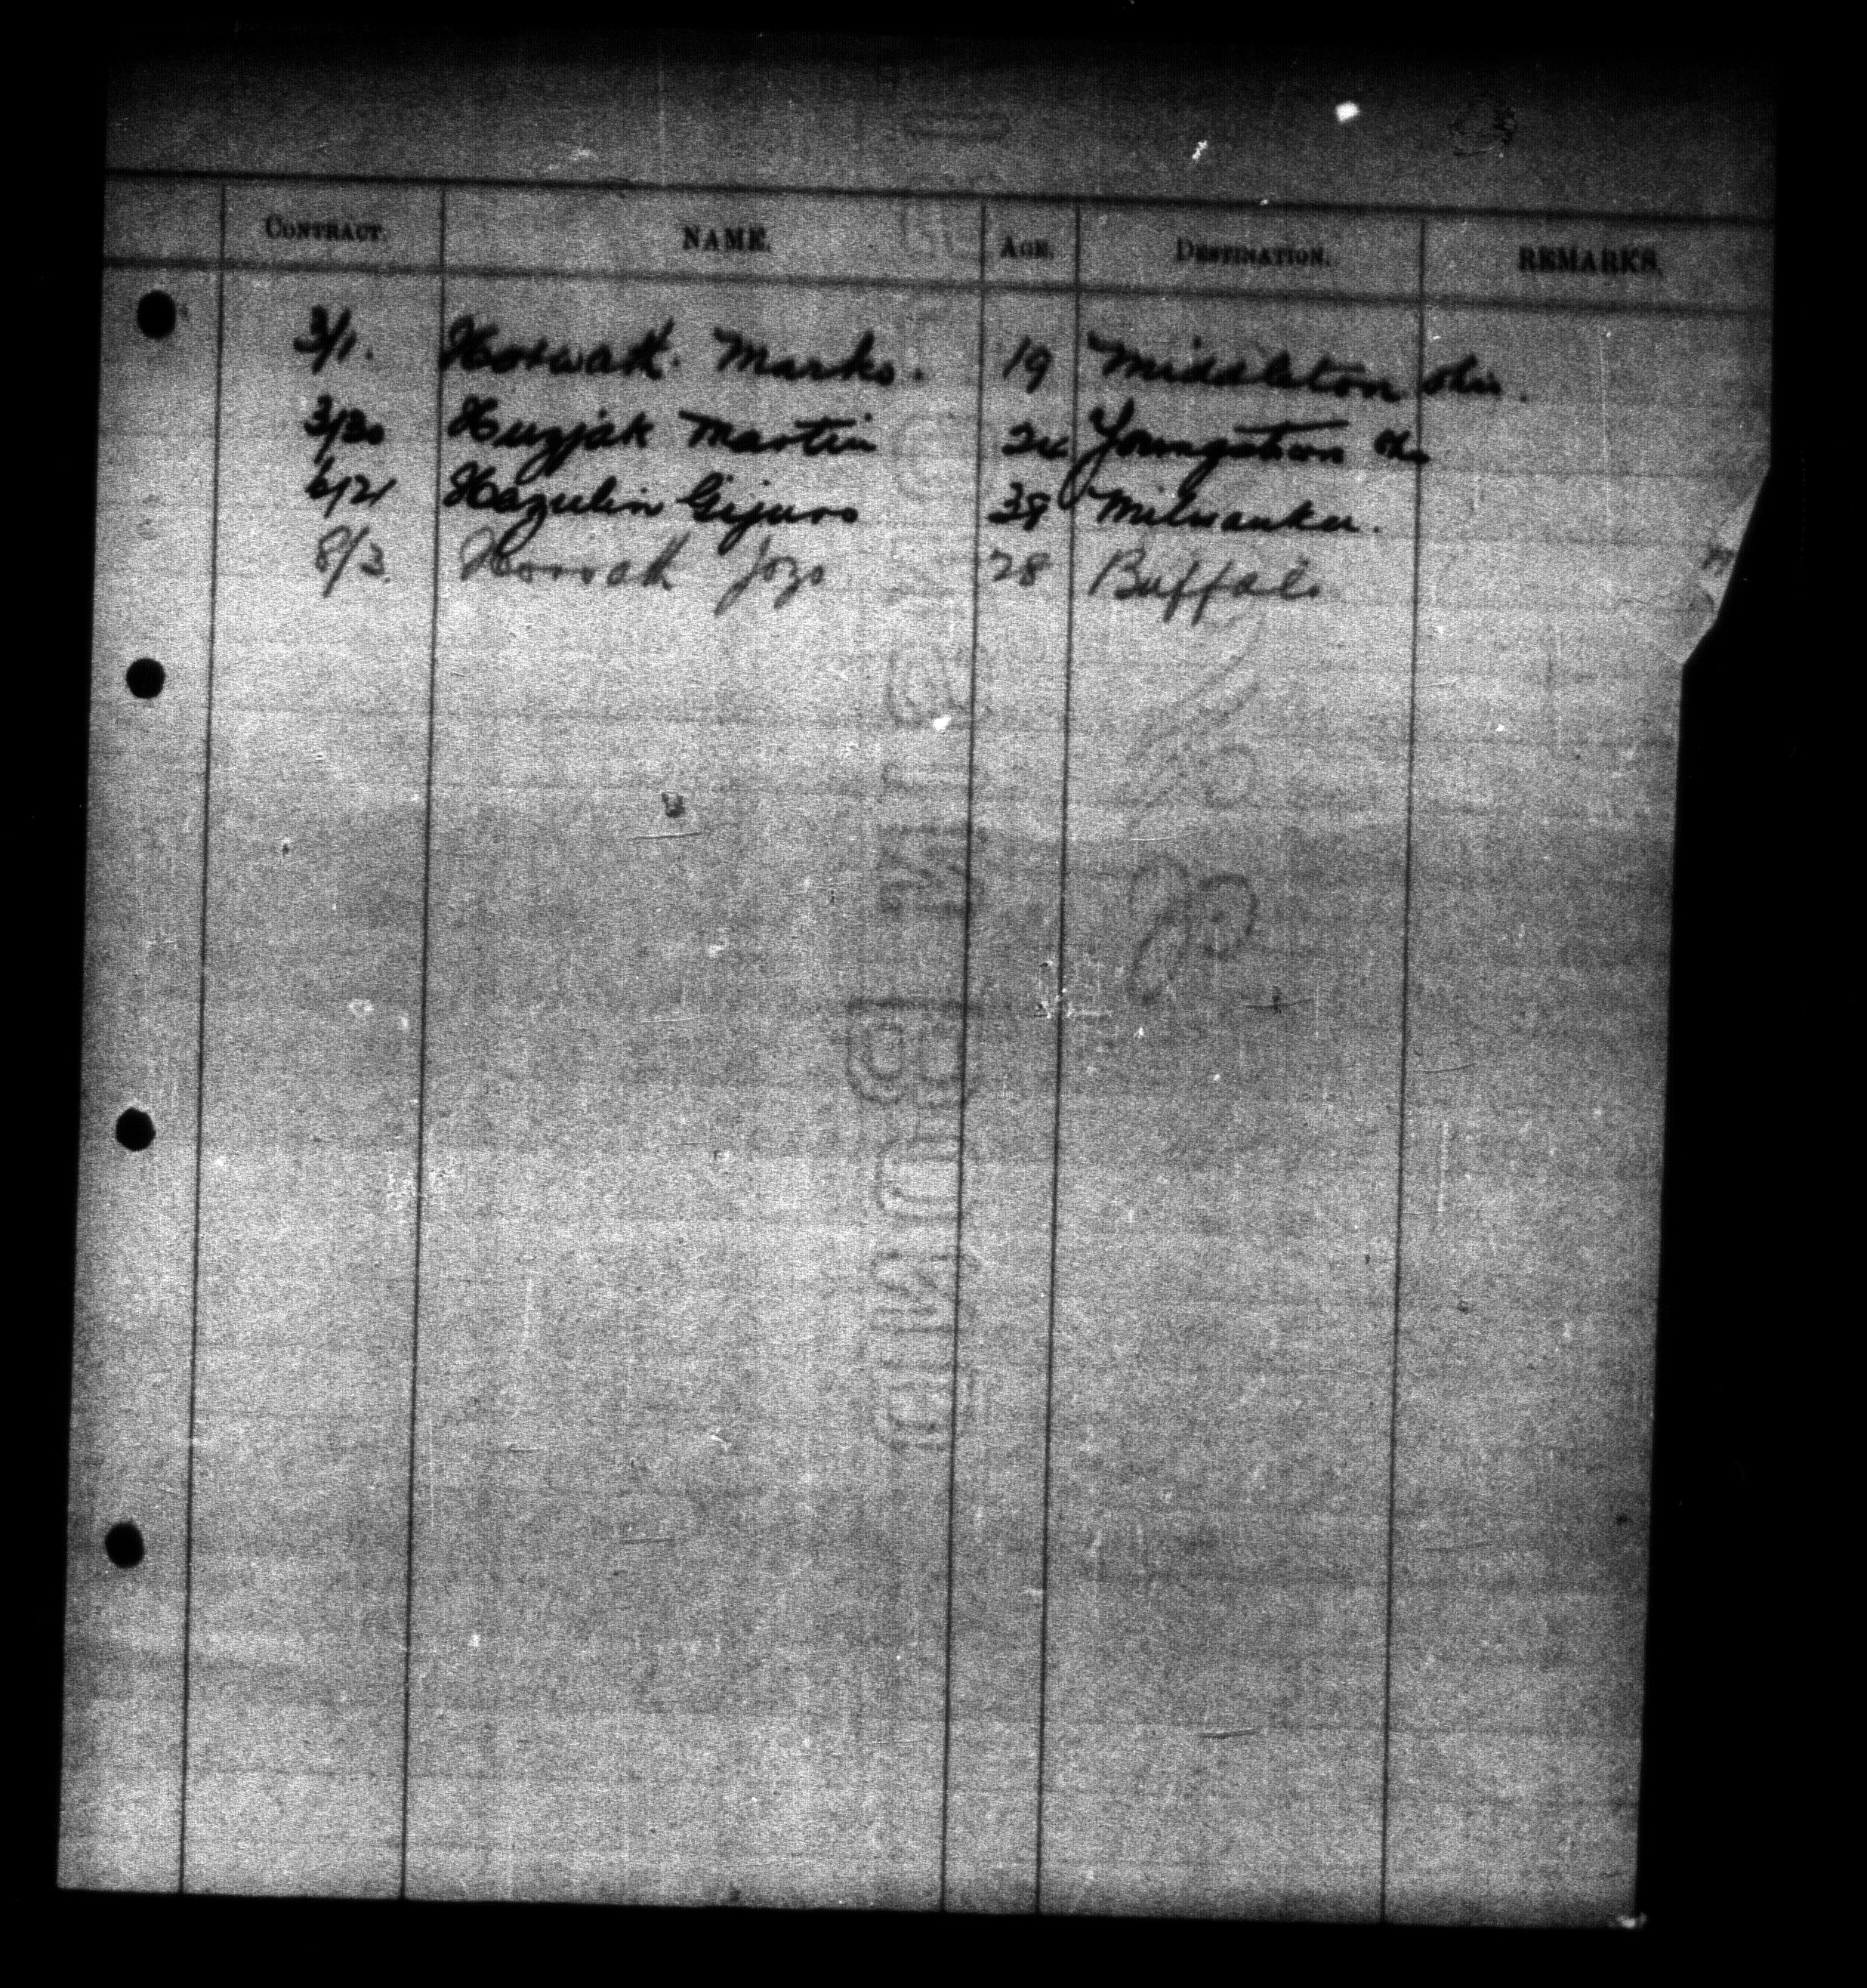 CONTRACT. NAME. AGE. DESTINATION. REMARKS.
3/1. Horwath. Marko. 19 Middleton Ohio.
3/30 Huzjak Martin 24 Youngstown Oh
6/21 Hazulin Gijuro 39 Milwaukee.
8/3. Horvath Jozo 28 Buffalo